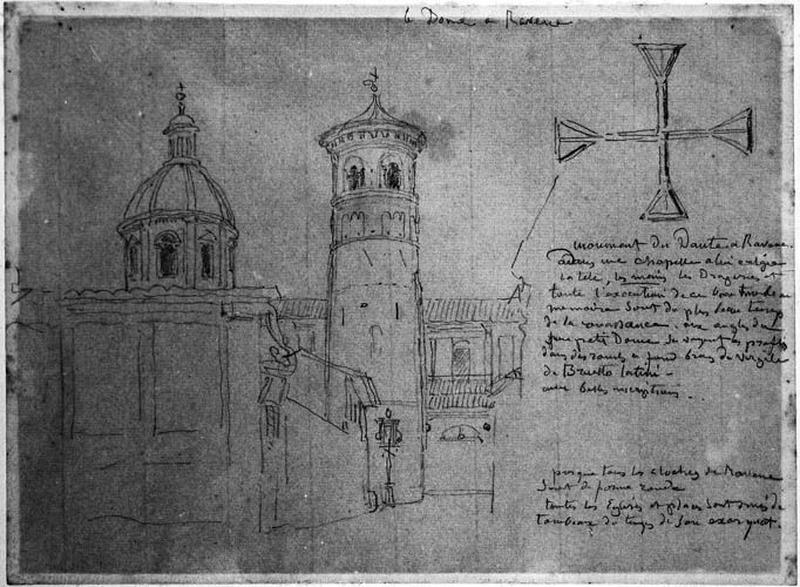 le Dome a Ravenne
monument du Dante a Ravenne.
dans une chapelle a lui erigée
la tete, les mains les Draperies et
toute l'execution de ce bas
sont du plus beau temps
de la renaissance. aux angles du
petit Dome se voyent les profils
dans des ronds a fond bleu de Virgile
de Brunetto latini -
avec belles inscriptions.
presque tous les clochers de Ravenne
sont de forme ronde
toutes les Eglises et places sont ornés de
tombeaux du temps de son exarquat.